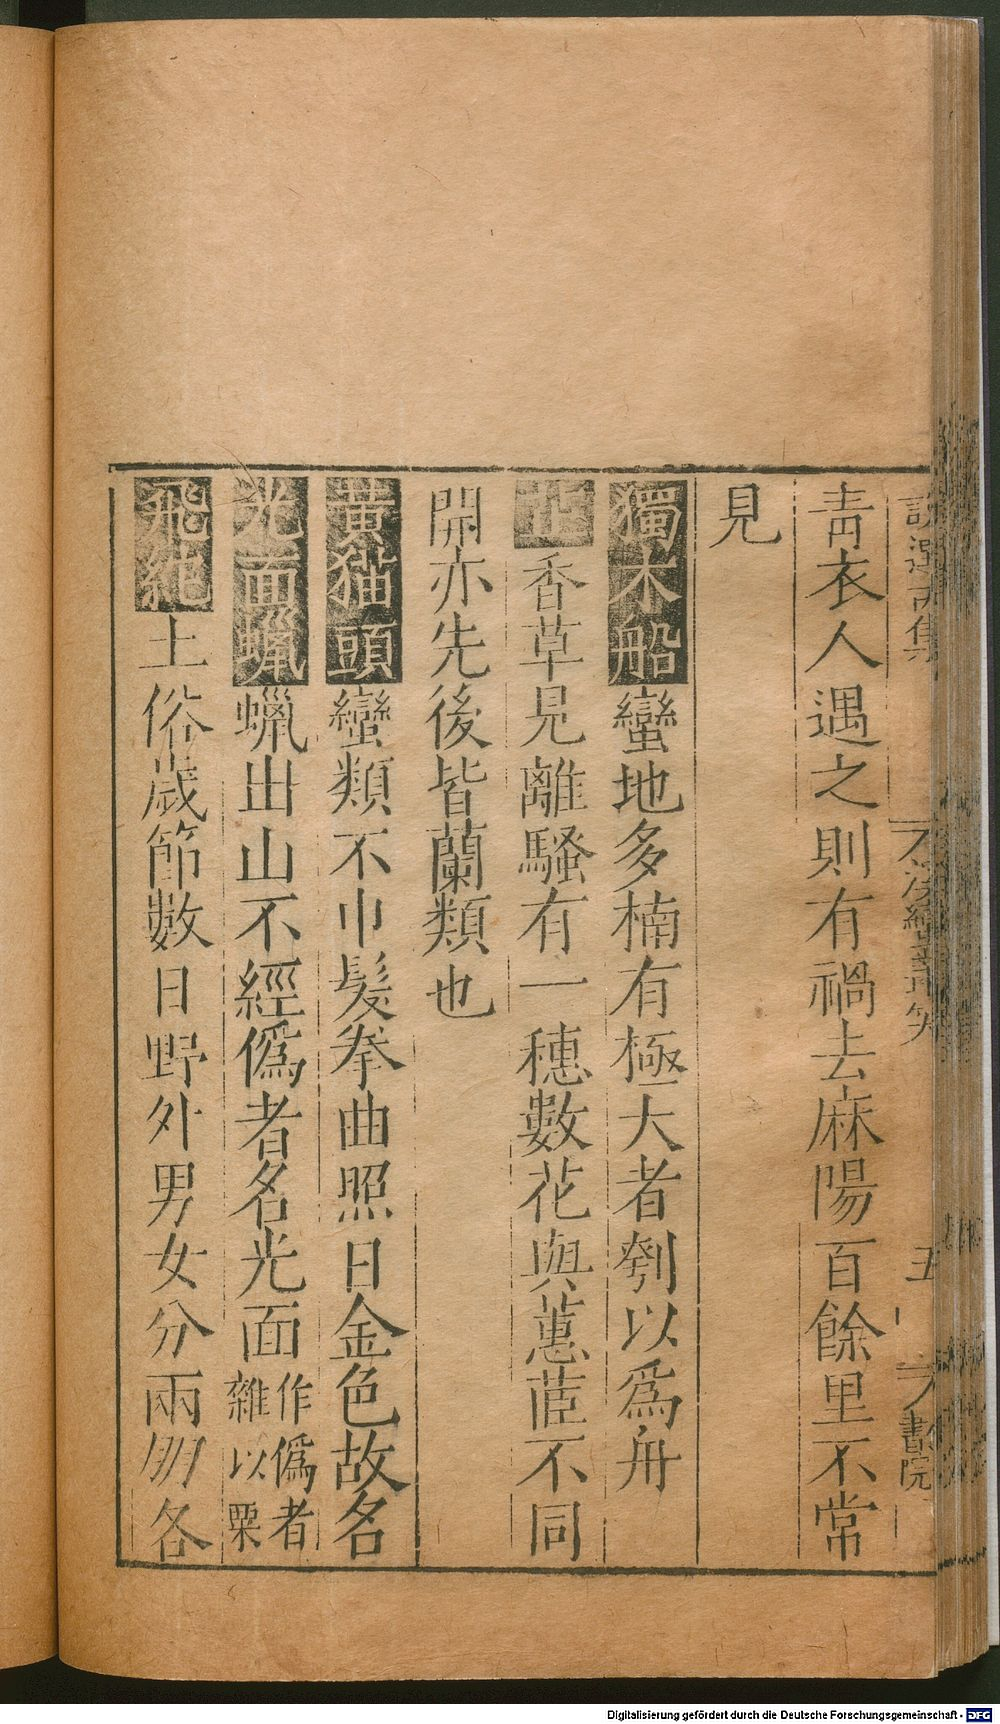 青衣人遇之則有禍去麻陽百餘里不常
見
獨木船蠻地多楠有極大者刳以爲舟
芷香草見離騷有一穗數花與蕙茝不同
開亦先後皆蘭類也
黃猫頭蠻類不巾髮拳曲照日金色故名
光面蠟蠟出山不經僞者名光面作僞者雜以粟
飛紽土俗歲節數日野外男女分兩朋各
五
書院
Digitalisierung gefördert durch die Deutsche Forschungsgemeinschaft - DFG